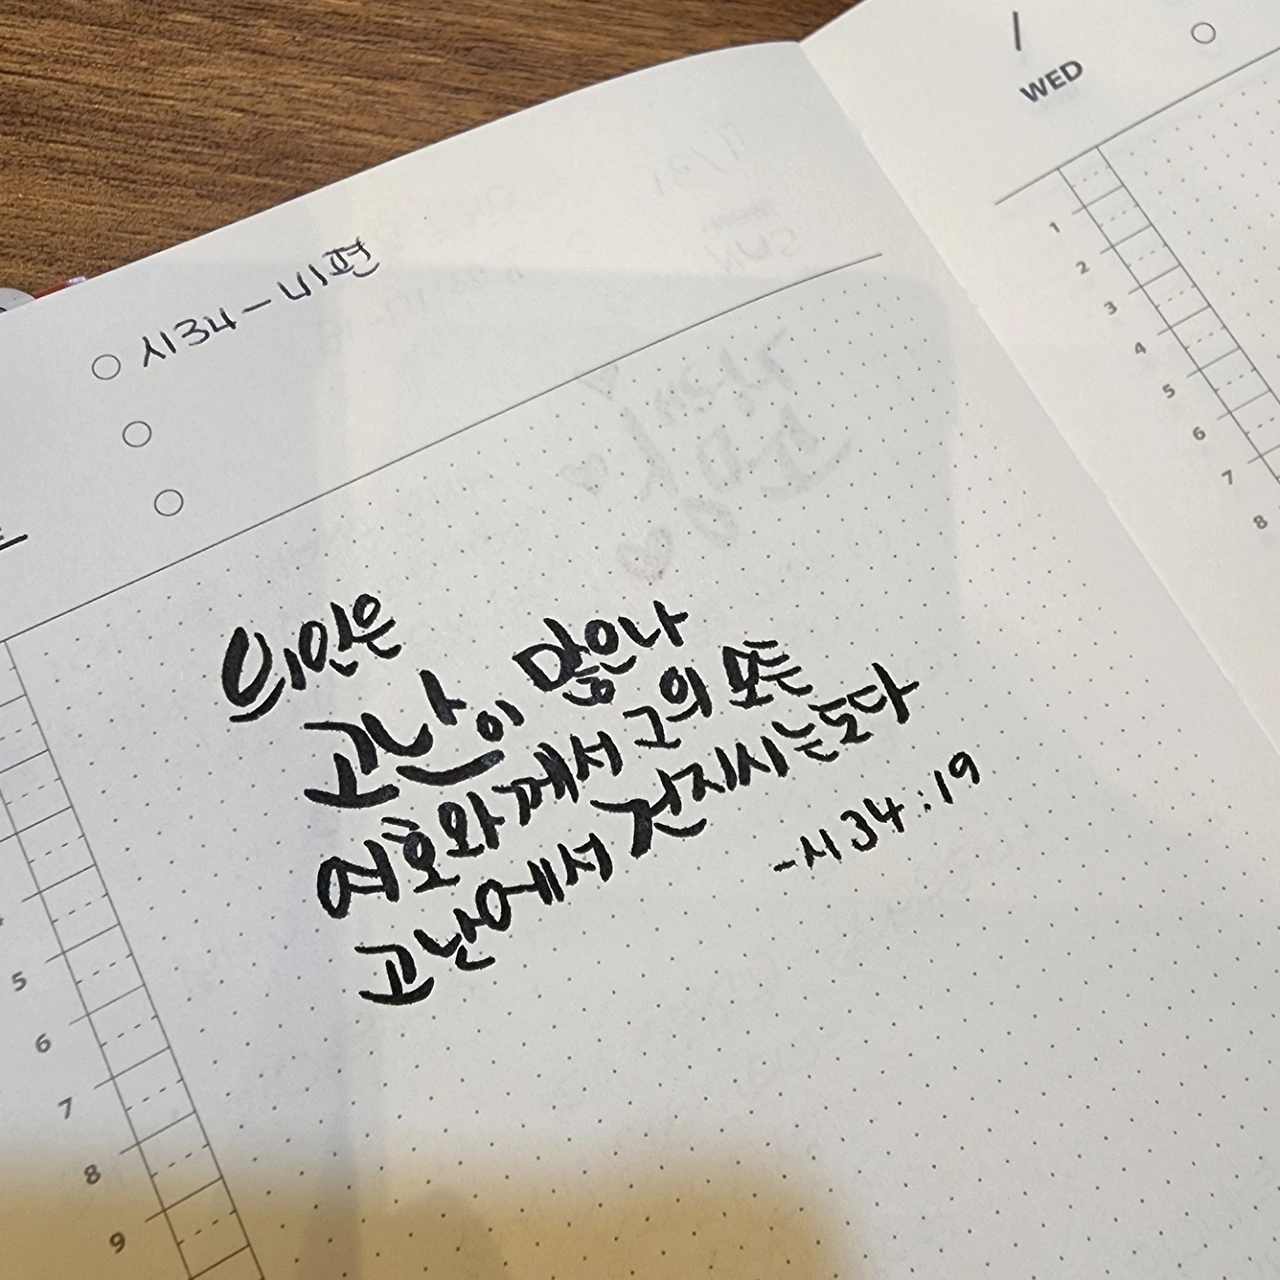 시34-41편
의인은
고난이 많으나
여호와께서 그의 모든
고난에서 건지시는도다
-시34:19
5
6
7
8
9
/
WED
1
2
3
4
5
6
7
8